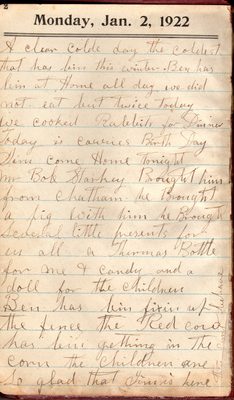 2
Monday, Jan. 2, 1922
A clear colde day the coldest
that has bin this winter Ben has
bin at Home all day we did
not eat but twice Today
we cooked for Dinner
Today is Birth Day
come Home tonight
mr Bob Starkey Brought him
from Chatham he Brought
a pig with him he Brough
several little presents for
us all a Thermas Bottle
for me & Candy and a
doll for the Children
Ben has bin fixin up
the fence the Red cow
has bin gething in the
corn the children are
so glad that is here